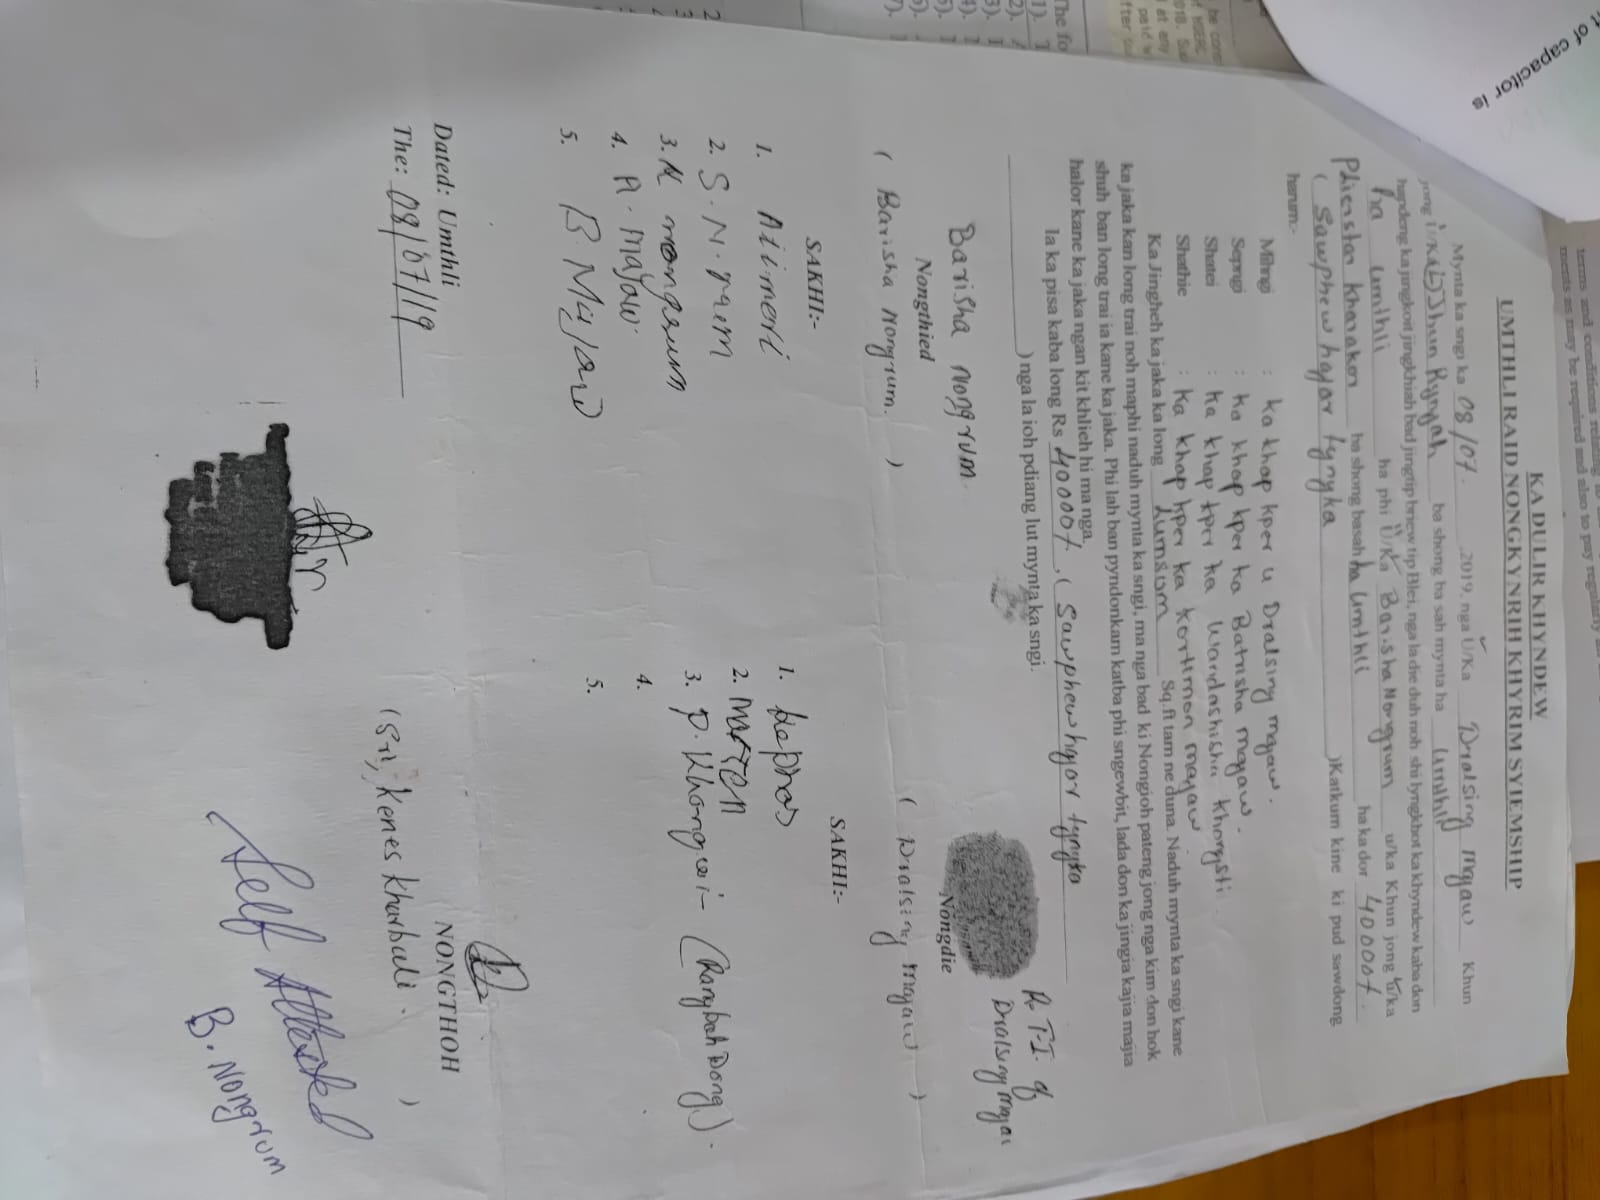 KA DULIR KHYNDEW
UMTHLI RAID NONGKYNRIH KHYRIM SYIEMSHIP
Mynta ka sngi ka 08/07. 2019, nga U/Ka Dralsing mgaw Khun
jong U/Ka(b) Jhun Ryngah ba shong ba sah mynta ha Umthli
handong ka jingkoit jingkhiah bad jingtip briew tip Blei, nga la die duh noh shi lyngkhot ka khyndew kaba don
ha Umthli ha phi U/Ka Barisha Nongrum u/ka Khun jong u/ka
Phierstar kharnakor ba shong basah ha Umthli ha ka dor 40000/.
( Sawphew hajar tyngka )Katkum kine ki pud sawdong
harum:-
Mihngi : ka khap kper u Dralsing mgaw.
Sepngi : ka khap kper ka Batrisha mgaw.
Shatei : ka khap kper ka Wandashisha khongsti.
Shathie : ka khap kper ka kortimon mgaw
Ka Jingheh ka jaka ka long Lumsum Sq.ft tam ne duna. Naduh mynta ka sngi kane
ka jaka kan long trai noh maphi naduh mynta ka sngi, ma nga bad ki Nongioh pateng jong nga kim don hok
shuh ban long trai ia kane ka jaka. Phi lah ban pyndonkam katba phi sngewbit, lada don ka jingia kajia majia
halor kane ka jaka ngan kit khlieh hi ma nga.
Ia ka pisa kaba long Rs 40000/. ,( Sawphew hajar tyngka
) nga la ioh pdiang lut mynta ka sngi.
R.T.I. of
Dralsing mgaw
Barisha nongrum
Nongthied
Nongdie
( Barisha Nongrum. )
( Dralsing mgaw )
SAKHI:-
1.
2. S. N. rum
3. N nongrum
4. A. mgaw.
5. B. Mgaw
SAKHI:-
1. Hephas
2.
3. P. Khongwir (Rangbah Dong).
4.
5.
Dated: Umthli
The: 08/07/19
NONGTHOH
(Sri, kenes kharbuli. )
Self Attested
B. Nongrum
of capacitor is